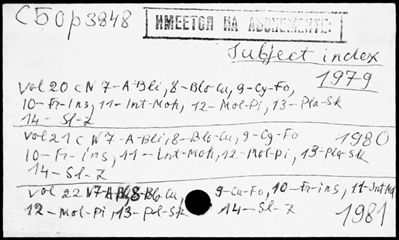 СБ0р3848
ИМЕЕТСЯ НА АБОНЕМЕНТЕ:
Subject index
1979
vol 20 c N 7-A-Bli, 8-Blo-Cu, 9-Cy-Fo,
10-Fr-Ins, 11-Int-Moh, 12-Mol-Pi, 13-Pla-Sk
14-Sl-Z
vol 21 c N 7-A-Bli, 8-Blo-Cu, 9-Cy-Fo 1980
10-Fr-ins, 11-Int-Moh, 12-Mol-Pi, 13-Pla-Sk
14-Sl-Z
vol 22 N7 8-Blo-Cu, 9-Cu-Fo, 10-Fr-ins, 11-Int-M
12-Mol-Pi, 13-Pl-Sk 14-Sl-Z 1981